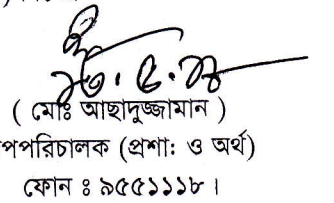 ( মোঃ আছাদুজ্জামান )
পপরিচালক (প্রশা: ও অর্থ)
ফোন ঃ ৯৫৫১১১৮ ।